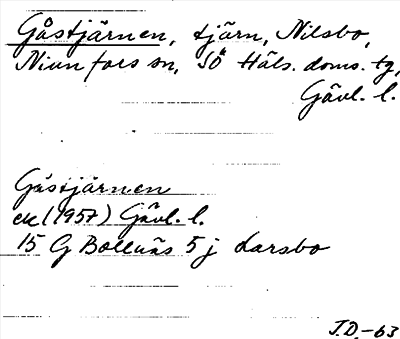 Gåstjärnen, tjärn, Nilsbo,
Nianfors sn, SÖ Häls. doms. tg,
Gävl. l.
Gåstjärnen
ek (1957) Gävl. l.
15 G Bollnäs 5 j Larsbo
J.D.-63